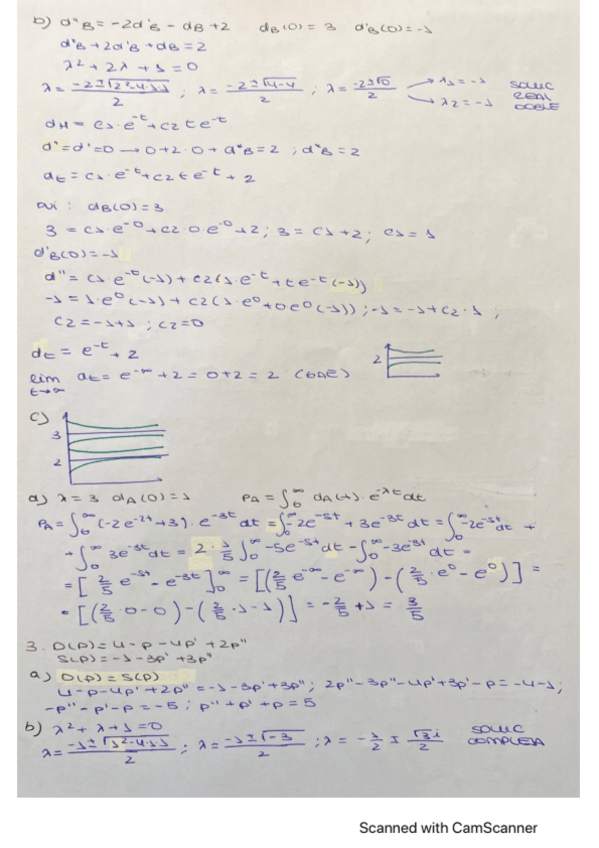 b) d''B = -2d'B - dB + 2   dB(0) = 3   d'B(0) = -1
d''B + 2d'B + dB = 2
λ² + 2λ + 1 = 0
λ = (-2 ± √(2²-4·1·1))/2 ; λ = (-2 ± √(4-4))/2 ; λ = (-2±√0)/2 → λ1 = -1 → λ2 = -1 SOLUC REAL DOBLE
dH = C1·e^-t + C2 t e^-t
d'' = d' = 0 → 0 + 2·0 + d*B = 2 ; d*B = 2
dt = C1·e^-t + C2 t e^-t + 2
dB(0) = 3
3 = C1·e^-0 + C2·0 e^-0 + 2 ; 3 = C1 + 2 ; C1 = 1
d'B(0) = -1
d'' = C1·e^-t(-1) + C2(1·e^-t + t e^-t(-1))
-1 = 1·e^0(-1) + C2(1·e^0 + 0e^0(-1)) ; -1 = -1 + C2·1 ;
C2 = -1+1 ; C2 = 0
dt = e^-t + 2
2
lim t→∞ dt = e^-∞ + 2 = 0 + 2 = 2
c)
3
2
d) λ = 3   dA(0) = 1   PA = ∫0^∞ dA(t)·e^-λt dt
PA = ∫0^∞ (-2e^-2t + 3)·e^-3t dt = ∫0^∞ -2e^-5t + 3e^-3t dt = ∫0^∞ -2e^-5t dt +
+ ∫0^∞ 3e^-3t dt = 2·1/5 ∫0^∞ -5e^-5t dt - ∫0^∞ -3e^-3t dt =
= [2/5 e^-5t - e^-3t]0^∞ = [(2/5 e^-∞ - e^-∞) - (2/5·e^0 - e^0)] =
= [(2/5·0 - 0) - (2/5·1 - 1)] = -2/5 + 1 = 3/5
3. D(p) = 4 - p - 4p' + 2p''
S(p) = -1 - 3p' + 3p''
a) D(p) = S(p)
4 - p - 4p' + 2p'' = -1 - 3p' + 3p'' ; 2p'' - 3p'' - 4p' + 3p' - p = -4 - 1 ;
-p'' - p' - p = -5 ; p'' + p' + p = 5
b) λ² + λ + 1 = 0
λ = (-1 ± √(1²-4·1·1))/2 ; λ = (-1 ± √-3)/2 ; λ = -1/2 ± √3i/2 SOLUC COMPLEJA
Scanned with CamScanner